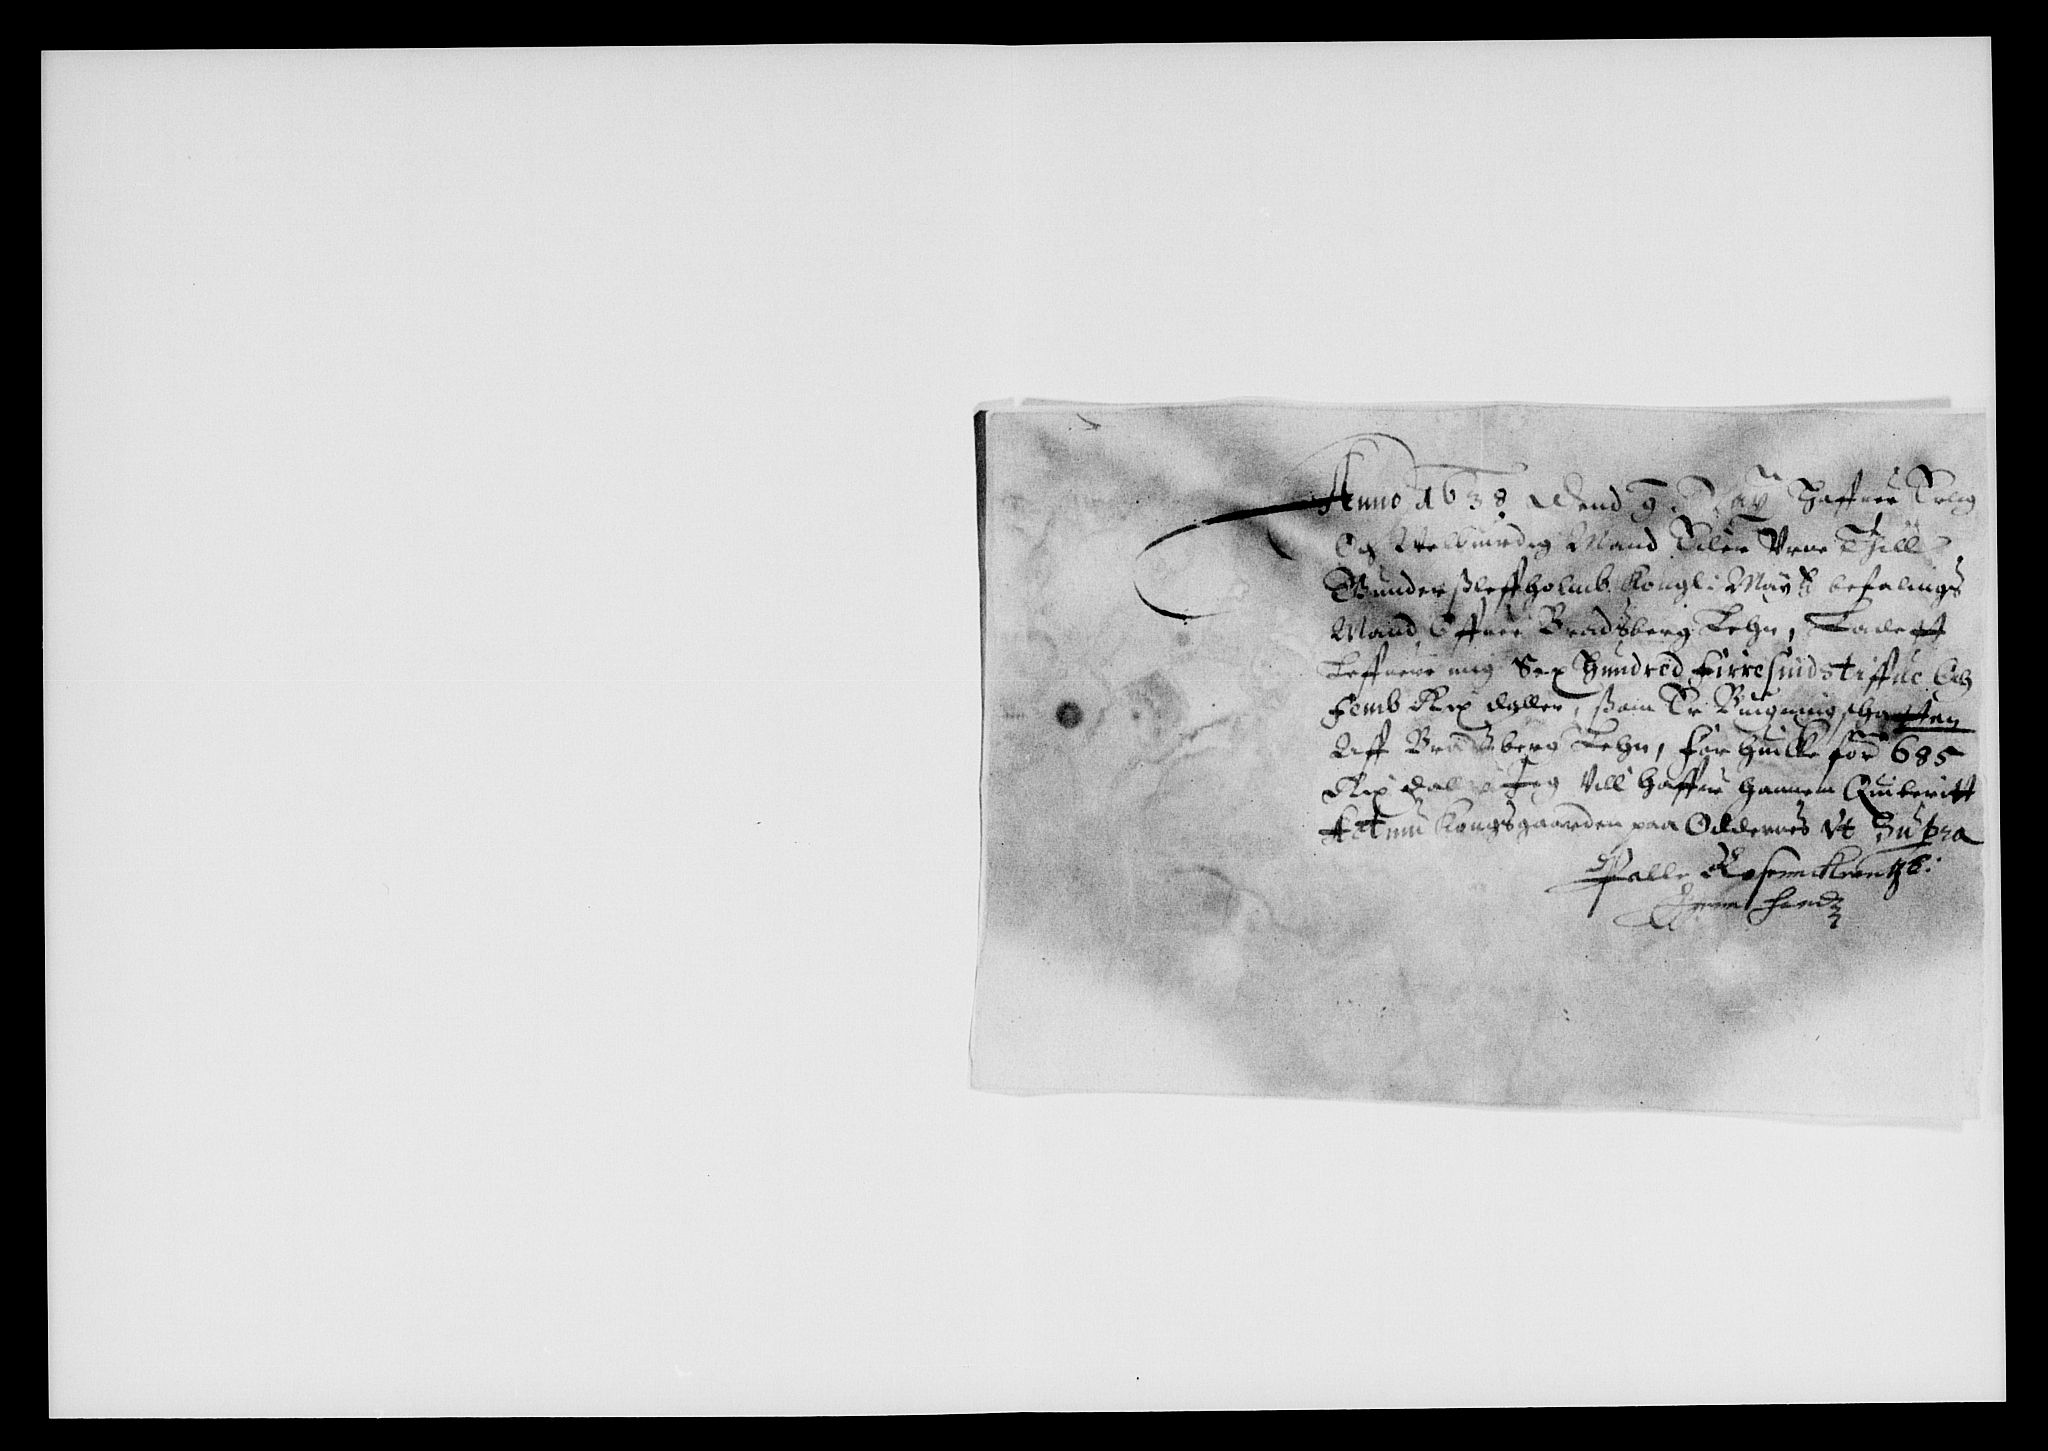 Anno 1638 Dend 9. May Haffuer Erlig
Och Welbiurdig Mand Eiler Vrne Thill
Gunderßleffholmb Kongl: May: befalings
Mand Offuer Bradsberg Lehn, Ladett
Leffuere mig Sex Hundred Firresindstiffue Och
Femb Rix daller, ßom Er Bugningschatten
Aff Bradsberg Lehn, for huilke for 685
Rix dall Jeg Vill haffue hannem Quiteritt
Actum Kongsgaarden paa Oddernes Vt Supra
Palle Rosennkrantz
Egenn hand